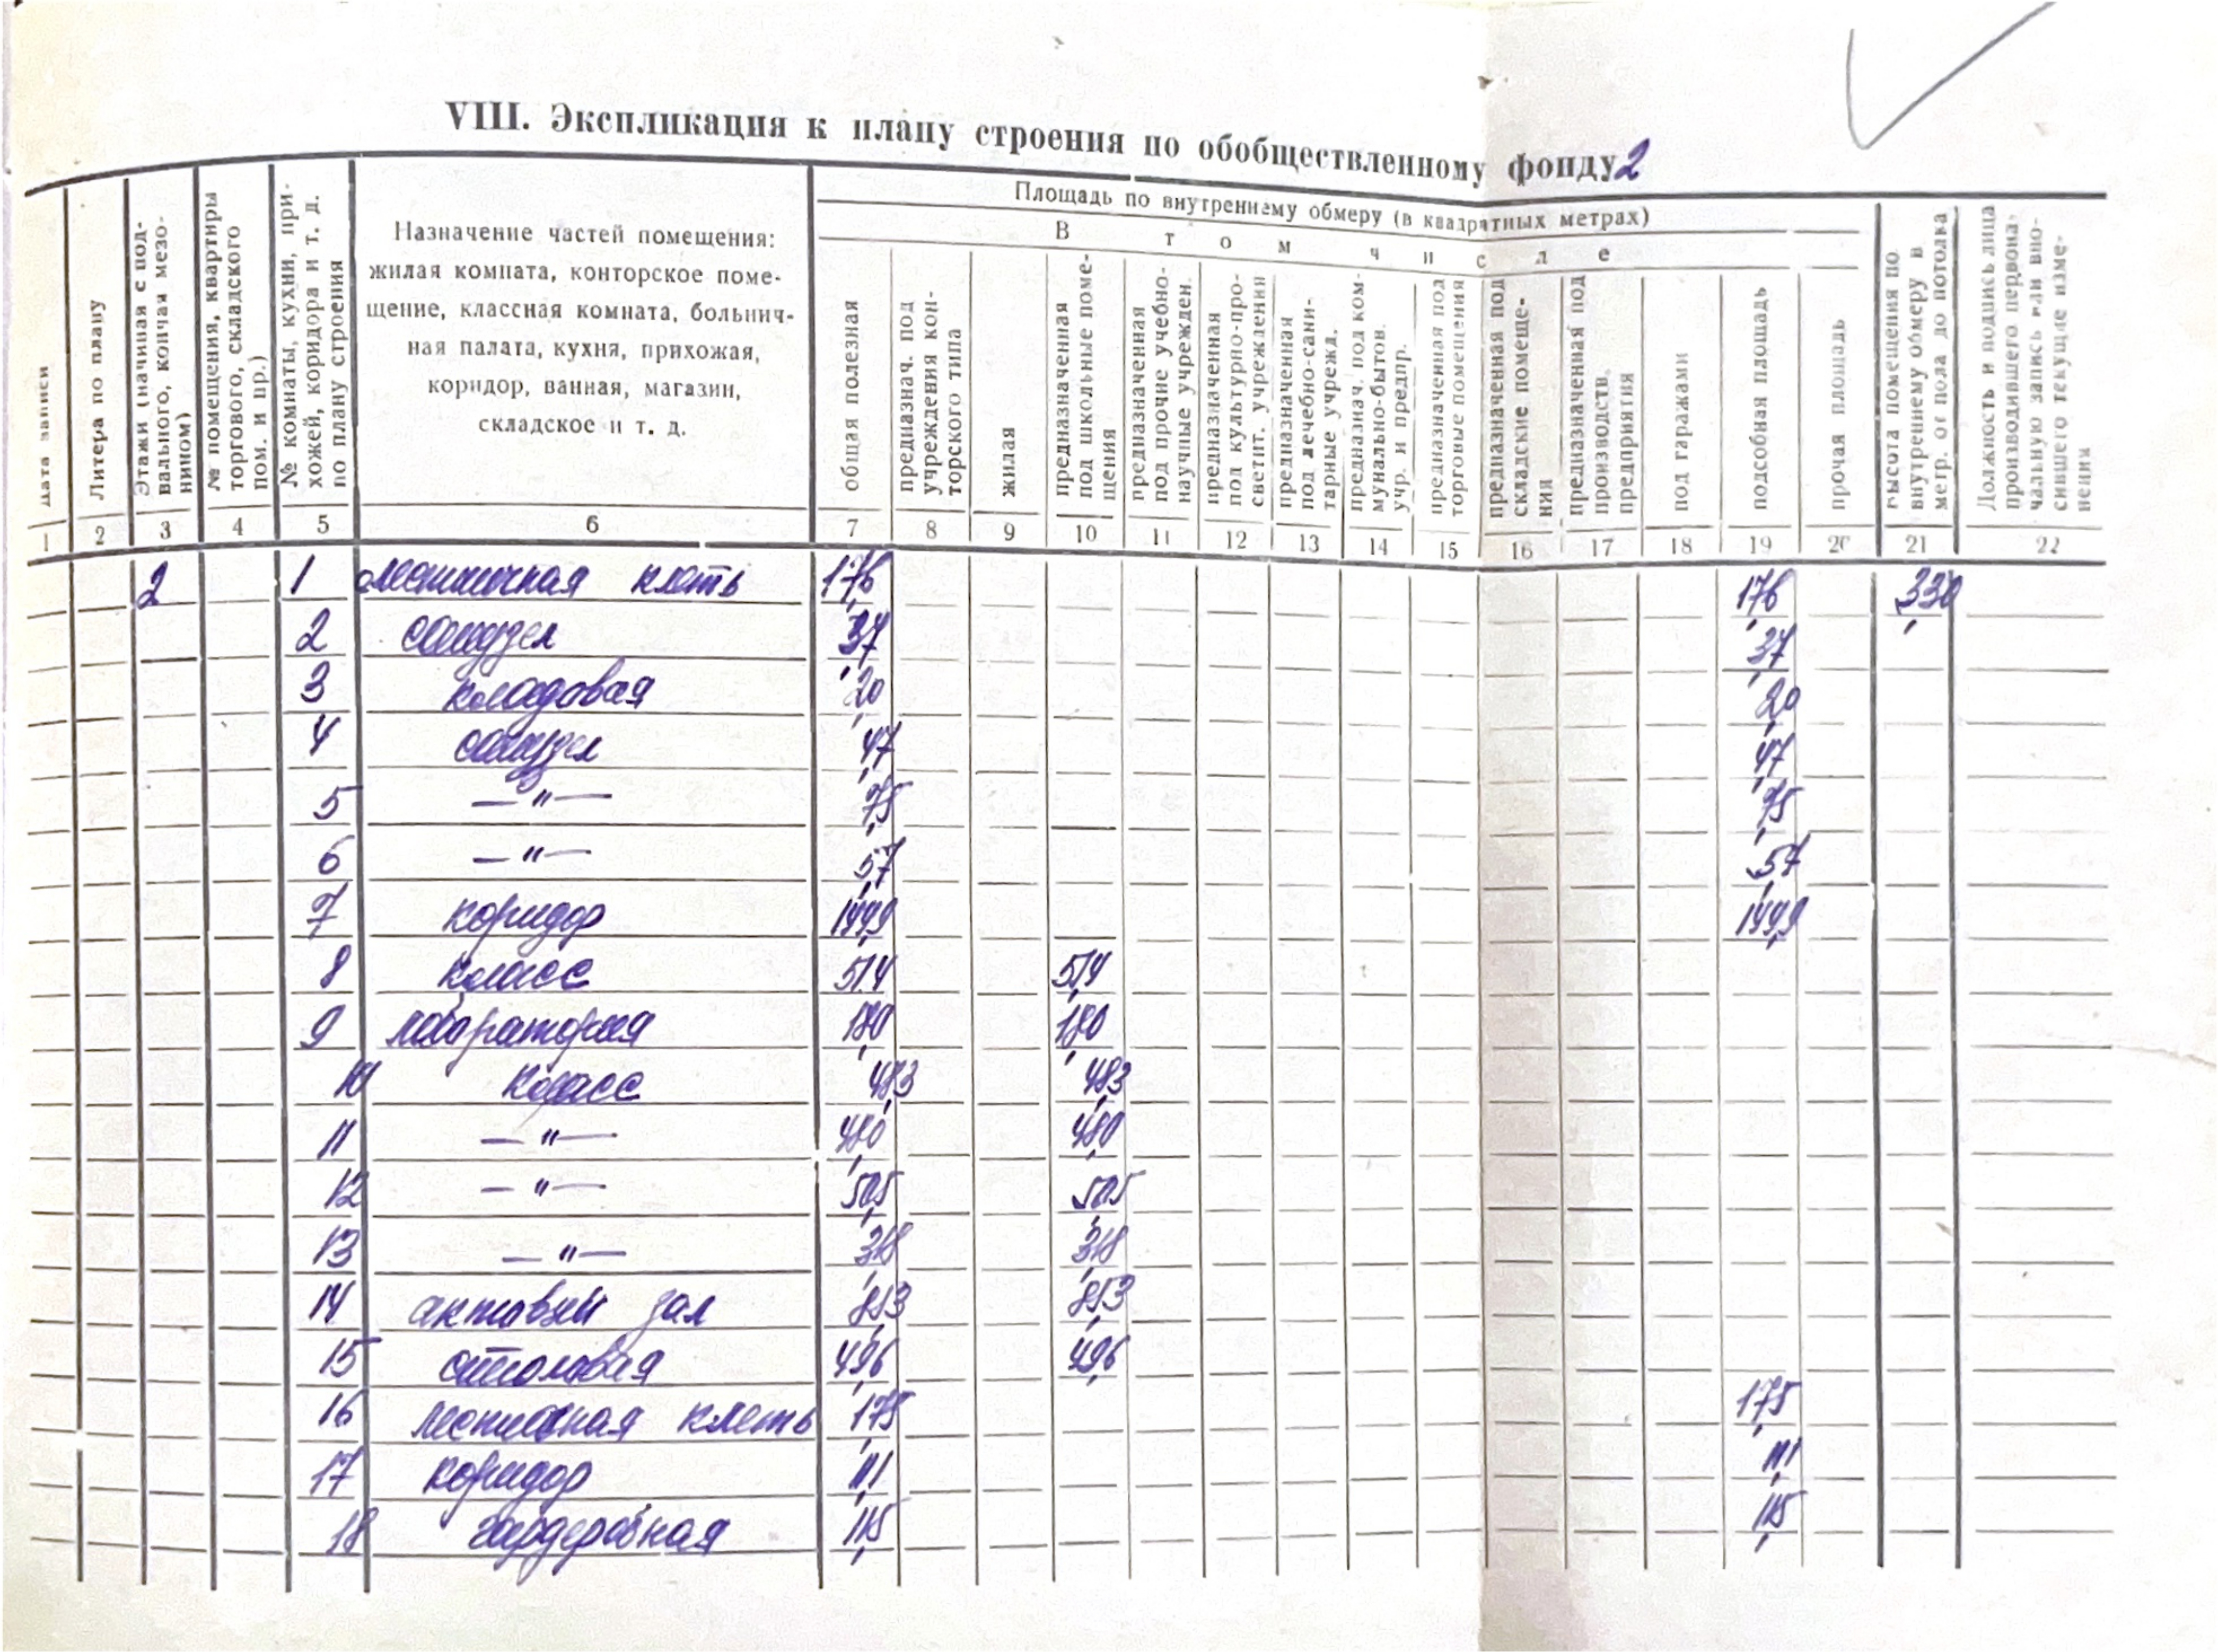 VIII. Экспликация к плану строения по обобществленному фонду 2
Дата записи
Литера по плану
Этажи (начиная с под-
вального, кончая мезо-
нином)
№ помещения, квартиры
торгового, складского
пом. и пр.)
№ комнаты, кухни, при-
хожей, коридора и т. д.
по плану строения
Назначение частей помещения:
жилая комната, конторское поме-
щение, классная комната, больнич-
ная палата, кухня, прихожая,
коридор, ванная, магазин,
складское и т. д.
Площадь по внутреннему обмеру (в квадратных метрах)
В том числе
общая полезная
предназнач. под
учреждения кон-
торского типа
жилая
предназначенная
под школьные поме-
щения
предназначенная
под прочие учебно-
научные учрежден.
предназначенная
под культурно-про-
светит. учреждения
предназначенная
под лечебно-сани-
тарные учрежд.
предназнач. под ком-
мунально-бытов.
учр. и предпр.
предназначенная под
торговые помещения
предназначенная под
складские помеще-
ния
предназначенная под
производств.
предприятия
под гаражами
подсобная площадь
прочая площадь
высота помещения по
внутреннему обмеру в
метр. от пола до потолка
Должность и подпись лица
производившего первона-
чальную запись или вно-
сившего текущие изме-
нения
1 2 3 4 5 6 7 8 9 10 11 12 13 14 15 16 17 18 19 20 21 22
2 1 лестничная клеть 17,6 17,6 3,30
2 санузел 3,7 3,7
3 кладовая 2,0 2,0
4 санузел 4,7 4,7
5 —"— 7,5 7,5
6 —"— 5,7 5,7
7 коридор 144,9 144,9
8 класс 51,4 51,4
9 лаборатория 18,0 18,0
10 класс 48,3 48,3
11 —"— 48,0 48,0
12 —"— 50,5 50,5
13 —"— 31,8 31,8
14 актовый зал 81,3 81,3
15 столовая 49,6 49,6
16 лестничная клеть 17,5 17,5
17 коридор 11,1 11,1
18 гардеробная 11,5 11,5